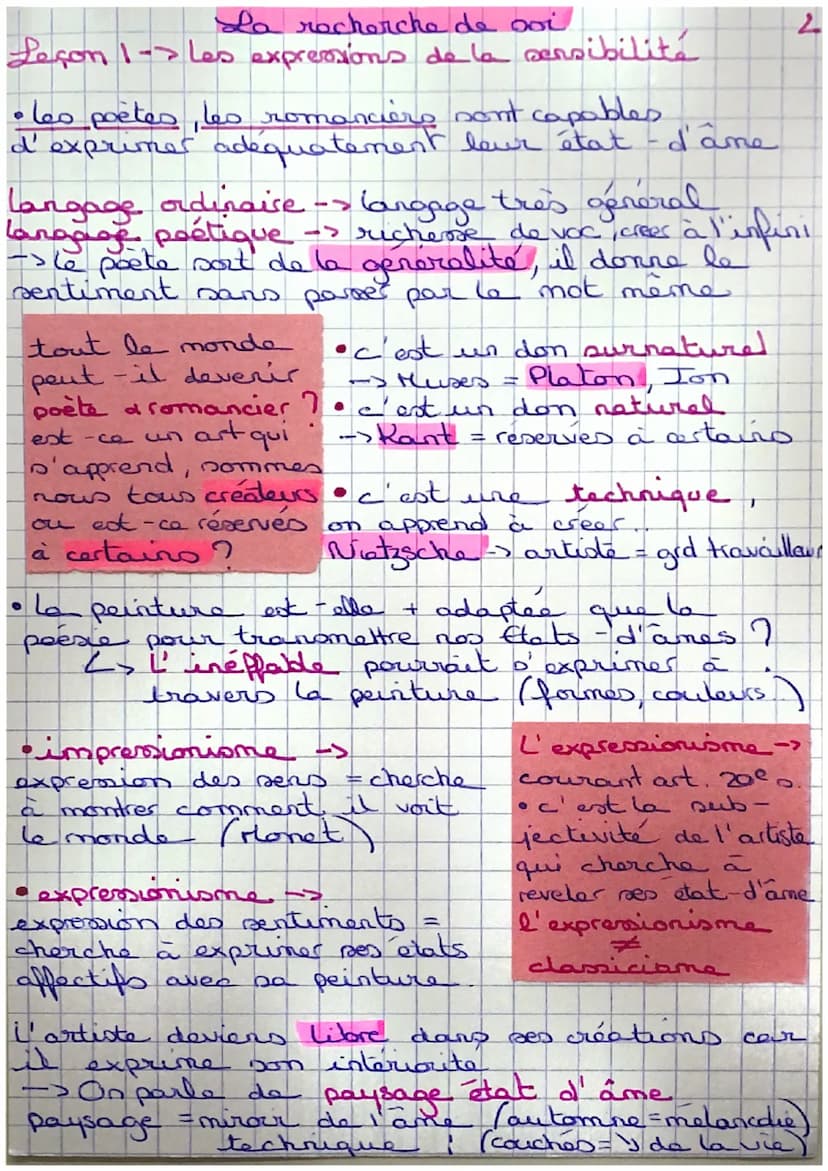 La recherche de soi
2
Leçon 1 -> Les expressions de la sensibilité
• les poètes, les romanciers sont capables
d'exprimer adéquatement leur état-d'âme
langage ordinaire -> langage très général
langage poétique -> richesse de voc, créer à l'infini
-> le poète sort de la généralité, il donne le
sentiment sans passer par le mot même
tout le monde
peut-il devenir
poète & romancier ?
est-ce un art qui
s'apprend, sommes
nous tous créateurs
ou est-ce réservés
à certains ?
• c'est un don surnaturel
-> Muses = Platon, Ion
• c'est un don naturel
-> Kant = réservés à certains
• c'est une technique,
on apprend à créer..
Nietzsche -> artiste = grd travailleur
• la peinture est-elle + adaptée que la
poésie pour transmettre nos états-d'âmes ?
↳ L'ineffable pourrait s'exprimer à
travers la peinture (formes, couleurs..)
• impressionisme ->
expression des sens = cherche
à montrer comment il voit
le monde (Monet)
• expressionisme ->
expression des sentiments =
cherche à exprimer ses états
affectifs avec sa peinture.
L'expressionisme ->
courant art. 20e s.
• c'est la sub-
jectivité de l'artiste
qui cherche à
reveler ses état-d'âme
l'expressionisme
≠
classicisme
L'artiste deviens libre dans ses créations car
il exprime son intériorité
-> On parle de paysage état d'âme
paysage = miroir de l'âme (automne = mélancolie)
technique : (couchés = ↘ de la vie)